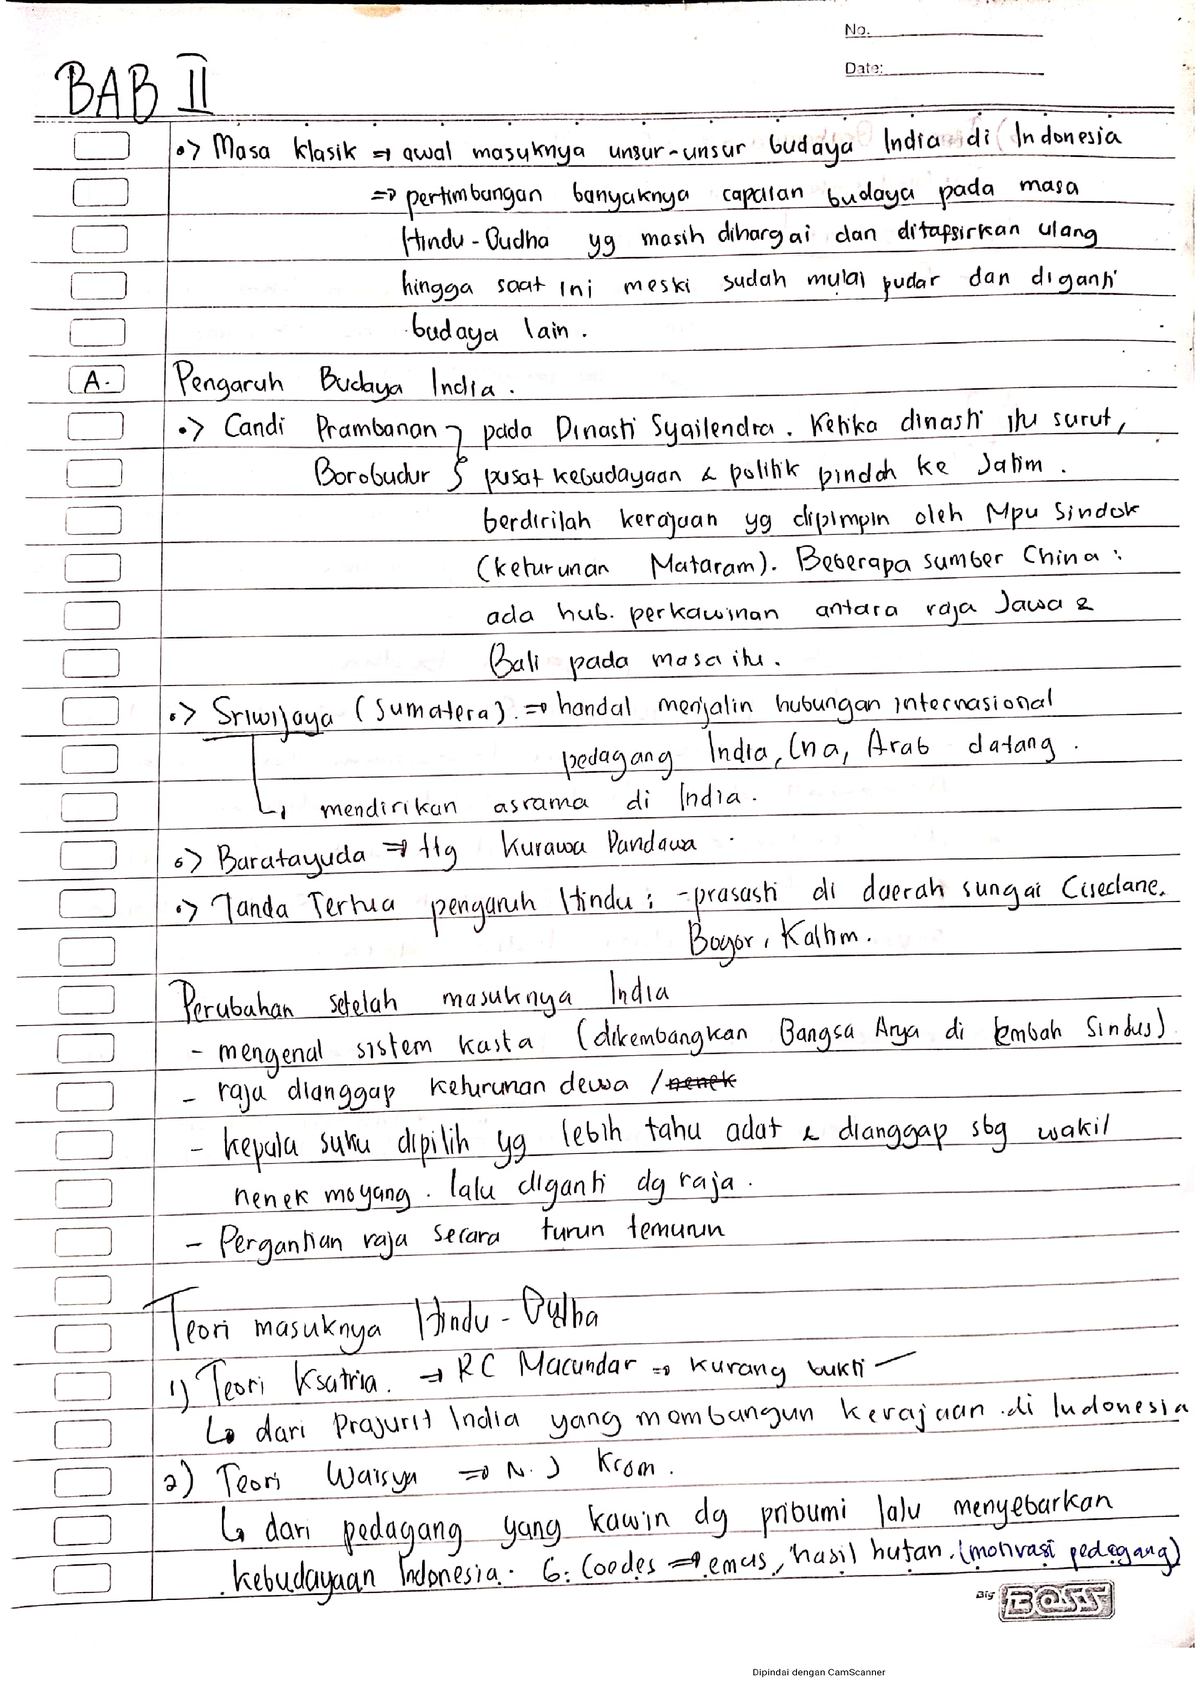 No.
Date:
BAB II
•> Masa klasik => awal masuknya unsur-unsur budaya India di Indonesia
=> pertimbangan banyaknya capaian budaya pada masa
Hindu-Budha yg masih dihargai dan ditafsirkan ulang
hingga saat ini meski sudah mulai pudar dan diganti
budaya lain.
A. Pengaruh Budaya India.
•> Candi Prambanan } pada Dinasti Syailendra. Ketika dinasti itu surut,
Borobudur } pusat kebudayaan & politik pindah ke Jatim.
berdirilah kerajaan yg dipimpin oleh Mpu Sindok
(keturunan Mataram). Beberapa sumber China :
ada hub. perkawinan antara raja Jawa &
Bali pada masa itu.
•> Sriwijaya (Sumatera). => handal menjalin hubungan internasional
pedagang India, Cna, Arab datang.
↳ mendirikan asrama di India.
•> Baratayuda => ttg Kurawa Pandawa
•> Tanda Tertua pengaruh Hindu : - prasasti di daerah sungai Cisedane.
Bogor, Kaltim.
Perubahan setelah masuknya India
- mengenal sistem kasta (dikembangkan Bangsa Arya di lembah Sindus)
- raja dianggap keturunan dewa / nenek
- kepala suku dipilih yg lebih tahu adat & dianggap sbg wakil
nenek moyang. lalu diganti dg raja.
- Pergantian raja secara turun temurun
Teori masuknya Hindu - Budha
1) Teori Ksatria. → RC Macundar => kurang bukti
↳ dari Prajurit India yang membangun kerajaan di Indonesia
2) Teori Waisya => N. J Krom.
↳ dari pedagang yang kawin dg pribumi lalu menyebarkan
kebudayaan Indonesia. G. Coedes => emas, hasil hutan. (motivasi pedagang)
Big BOSS
Dipindai dengan CamScanner